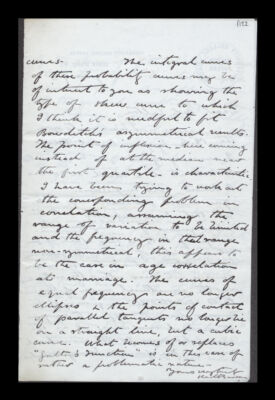 curves. The integral curves
of these probability curves may be
of interest to you as showing the
type of skew curve to which
I think it is needful to fit
Bowditch's asymmetrical results.
The point of inflexion here coming
instead of at the median near
the first quartile is characteristic.
I have been trying to work out
the corresponding problem in
correlation, assuming the
range of variation to be limited
and the frequency in that range
non-symmetrical, this appears to
be the case in age correlation
at marriage. The curves of
equal frequency are no longer
ellipses & the points of contact
of parallel tangents no longer lie
on a straight line, but a cubic
curve. What becomes of or replaces
"Galton's Function" is in this case of
rather a problematic nature.
Yours very truly